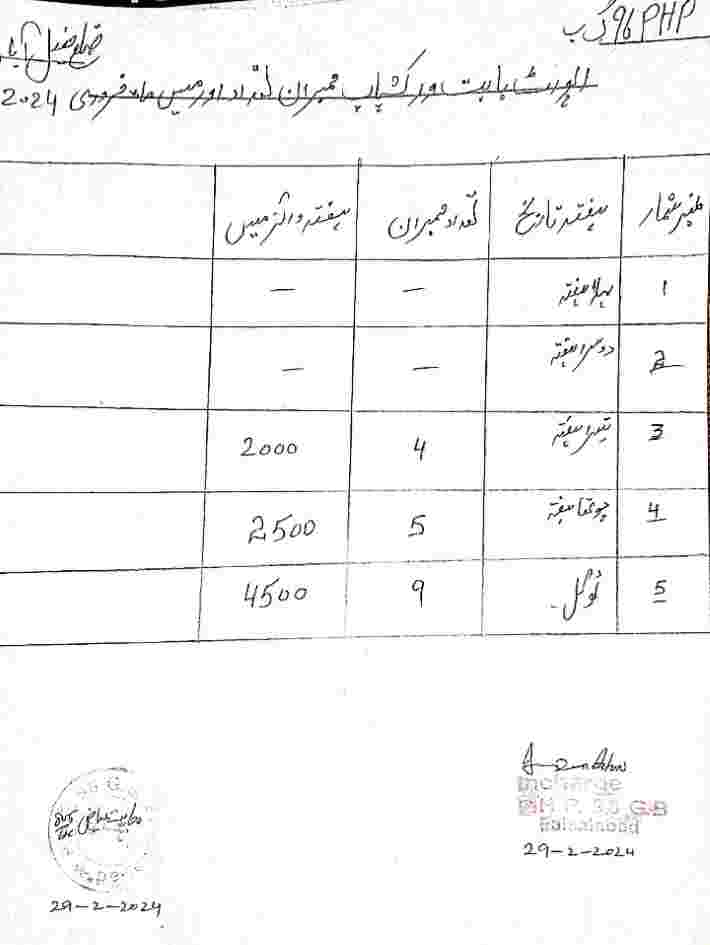 PHP 96 گ ب
ضلع فیصل آباد
رپورٹ بابت ورکشاپ ممبران تعداد اور فیس ماہ فروری 2024
نمبر شمار ہفتہ تاریخ تعداد ممبران ہفتہ وائز فیس
1 پہلا ہفتہ — —
2 دوسرا ہفتہ — —
3 تیسرا ہفتہ 4 2000
4 چوتھا ہفتہ 5 2500
5 ٹوٹل۔ 9 4500
Incharge
P.H.P. 96 G.B
Faisalabad
29-2-2024
29-2-2024